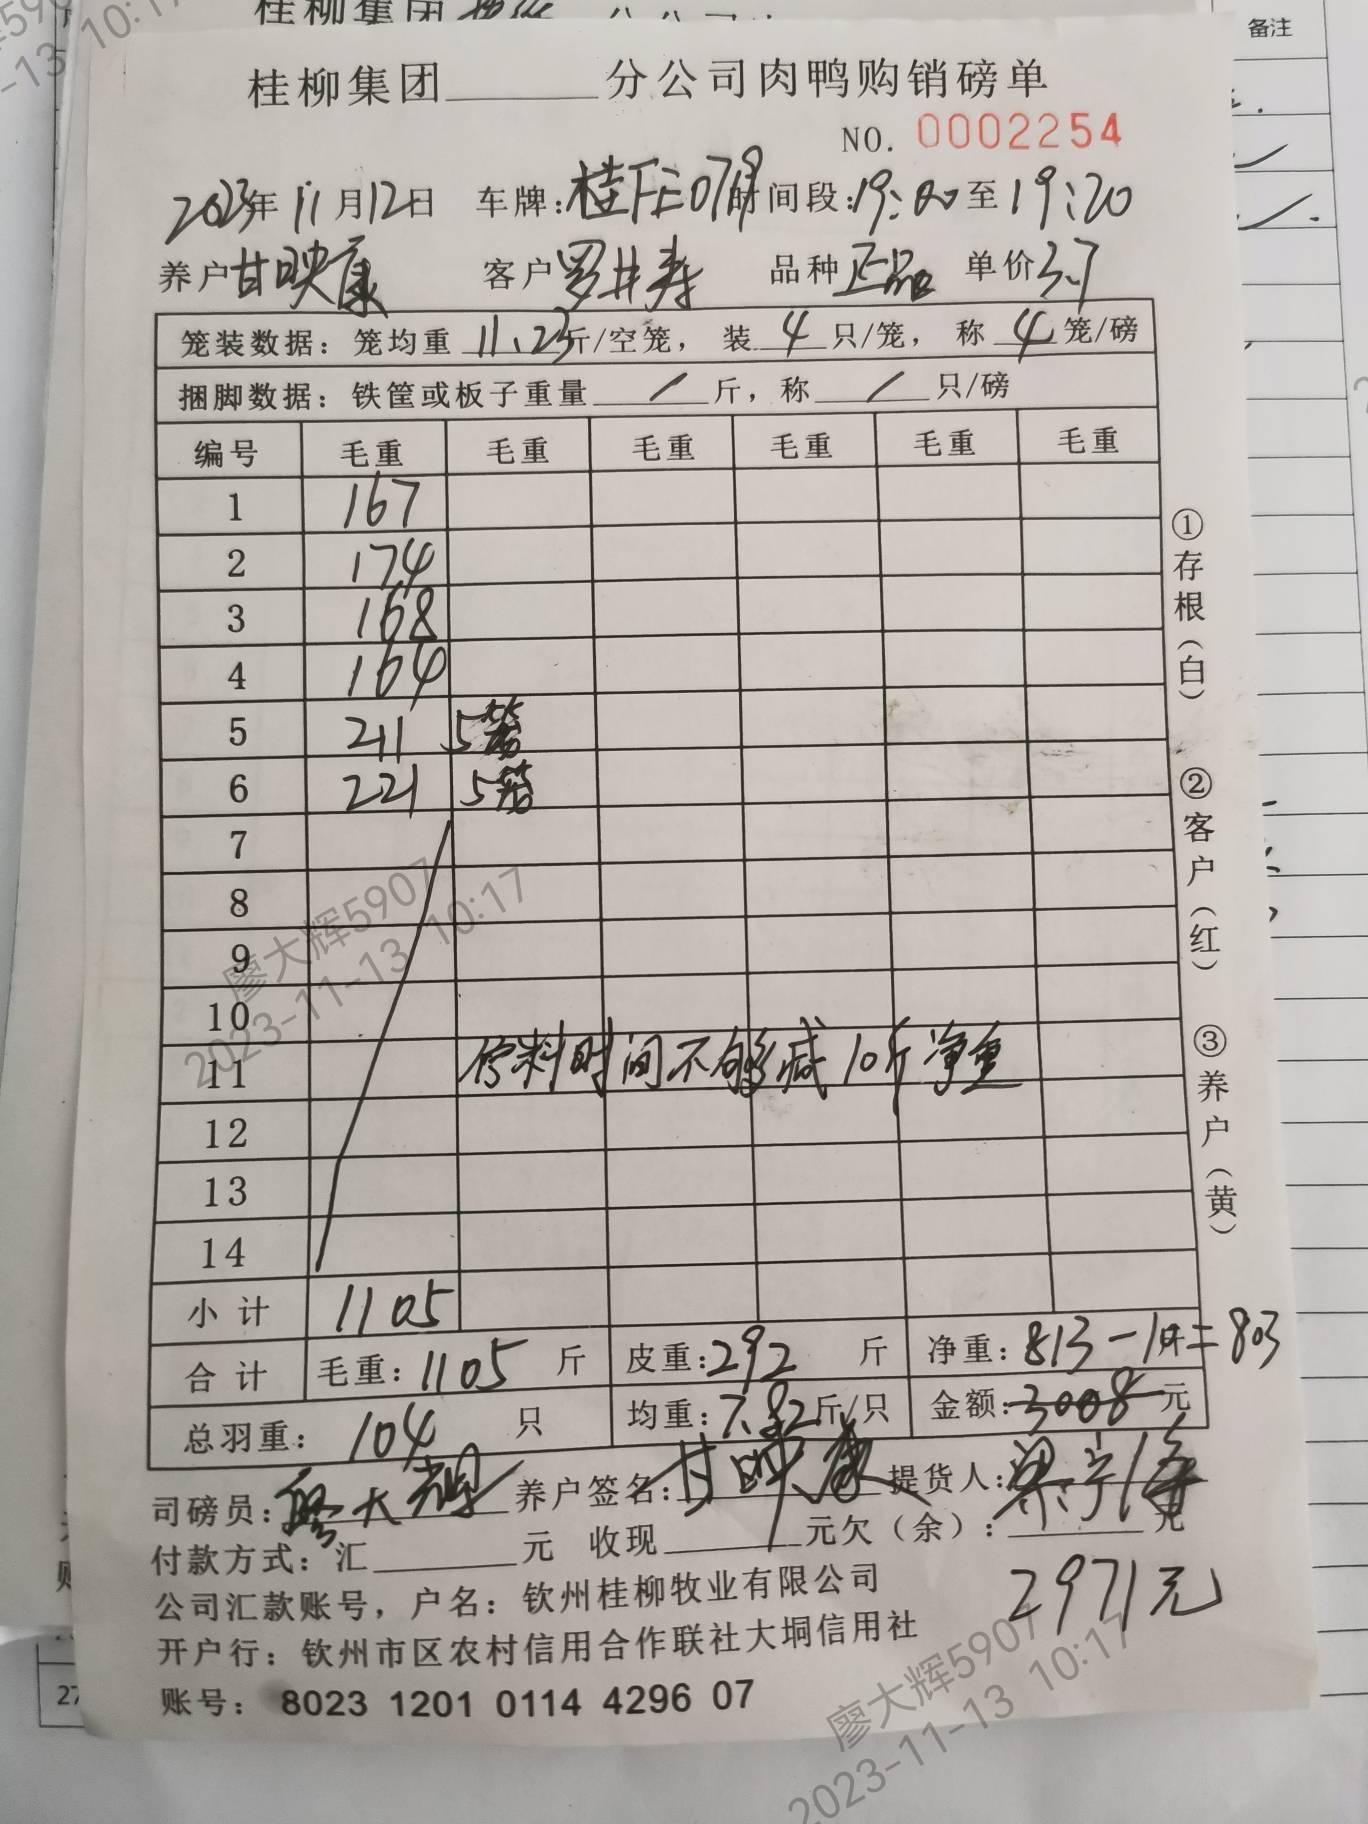 桂柳集团______分公司肉鸭购销磅单
NO. 0002254
2023年11月12日 车牌: 时间段:19:00至19:20
养户甘映康 客户罗井寿 品种正品 单价3.7
笼装数据：笼均重 11.23斤/空笼，装 4 只/笼，称 4 笼/磅
捆脚数据：铁筐或板子重量 / 斤，称 / 只/磅
编号 毛重 毛重 毛重 毛重 毛重 毛重
1 167
2 174
3 168
4 164
5 211 5笼
6 221 5笼
7
8
9
10
11 停料时间不够减10斤净重
12
13
14
小计 1105
合计 毛重：1105 斤 皮重：292 斤 净重：813-10斤=803
总羽重：104 只 均重：7.82斤/只 金额：3008元
司磅员：廖大辉 养户签名：甘映康 提货人：
付款方式：汇______元 收现______元欠（余）：______元
公司汇款账号，户名：钦州桂柳牧业有限公司
2971元
开户行：钦州市区农村信用合作联社大垌信用社
账号：8023 1201 0114 4296 07
①存根（白） ②客户（红） ③养户（黄）
备注
27
廖大辉5907
2023-11-13 10:17
廖大辉5907
2023-11-13 10:17